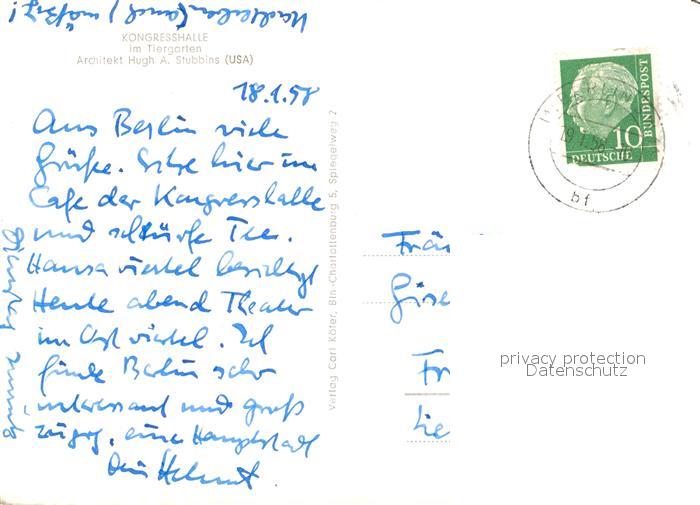 KONGRESSHALLE
im Tiergarten
Architekt Hugh A. Stubbins (USA)
18.1.58
Aus Berlin viele
Grüße. Sitze hier im
Cafe der Kongresshalle
und schlürfe Tee.
Hansaviertel besichtigt
Heute abend Theater
im Ostviertel. Ich
finde Berlin sehr
interessant und groß
zügig, eine Hauptstadt
Dein Helmut
Verlag Carl Köfer, Bln-Charlottenburg 5, Spiegelweg 2
10
DEUTSCHE
BUNDESPOST
bf
Fräu
Gise
Fr
privacy protection
Datenschutz